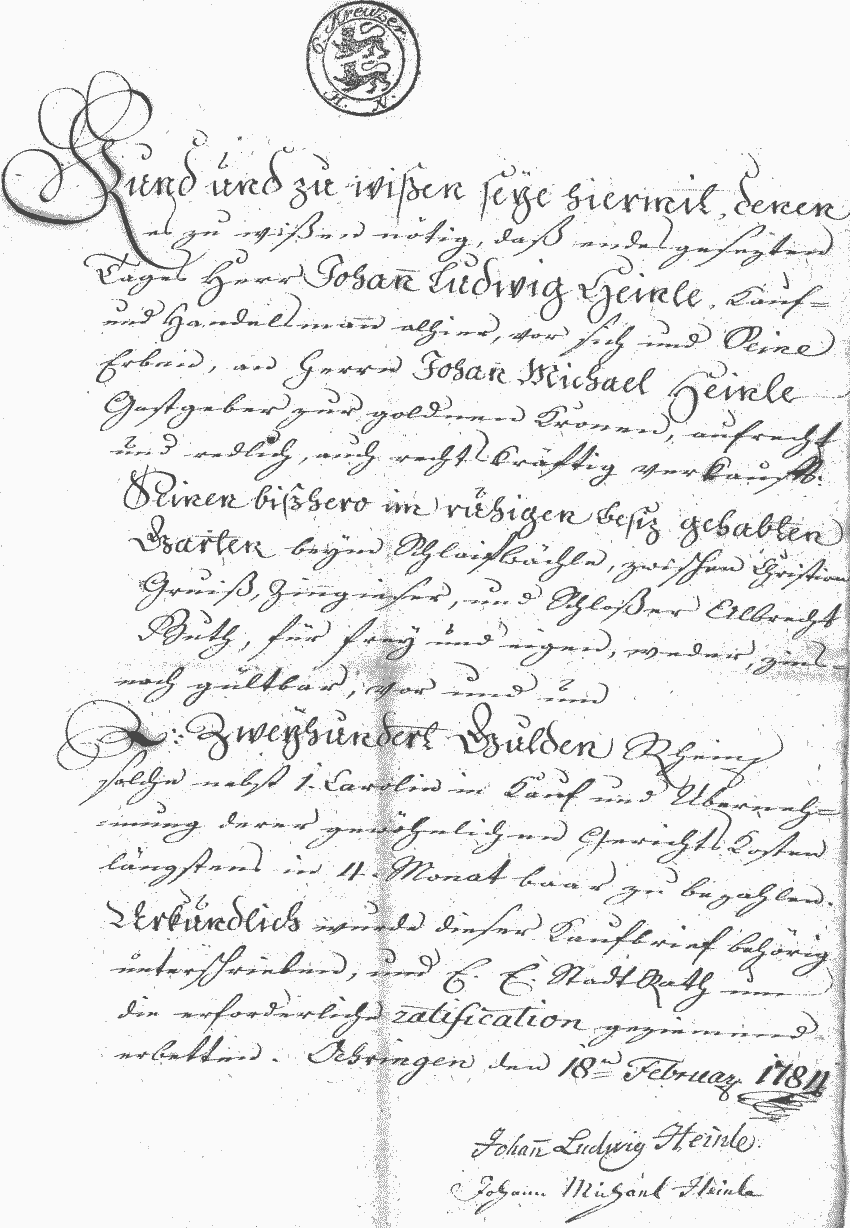 6. Kreuzer.
H. N.
Kund und zu wißen seÿe hiermit, denen
es zu wißen nötig, daß endesgesezten
Tages Herr Johan̄ Ludwig Heinle, Kauf-
und Handelsman̄ alhier, vor sich und Seine
Erben, an Herrn Johan̄ Michael Heinle
Gastgeber zur goldenen Kronen, aufrecht
und redlich, auch rechtskräftig verkauft:
Seinen bißhero im rühigen besiz gehabten
Garten beym Schleifbächle, zwischen Christian
Gruiß, Zin̄gieser, und Schloßer Albrecht
Wuth, für freÿ und eigen, weder, zins-
noch gültbar, vor und um
Zweÿhundert Gulden Rhein
solche nebst 1. Carolin in Kauf und Überneh-
mung derer gewöhnlichen Gerichts Kosten
längstens in 4. Monat baar zu bezahlen.
Urkundlich wurde dieser Kaufbrief behörig
unterschrieben, und E. E. Stadt Rath um
die erforderliche ratification geziemend
erbetten. Oehringen den 18ten Februar 1784
Johan̄ Ludwig Heinle.
Johann Michael Heinle